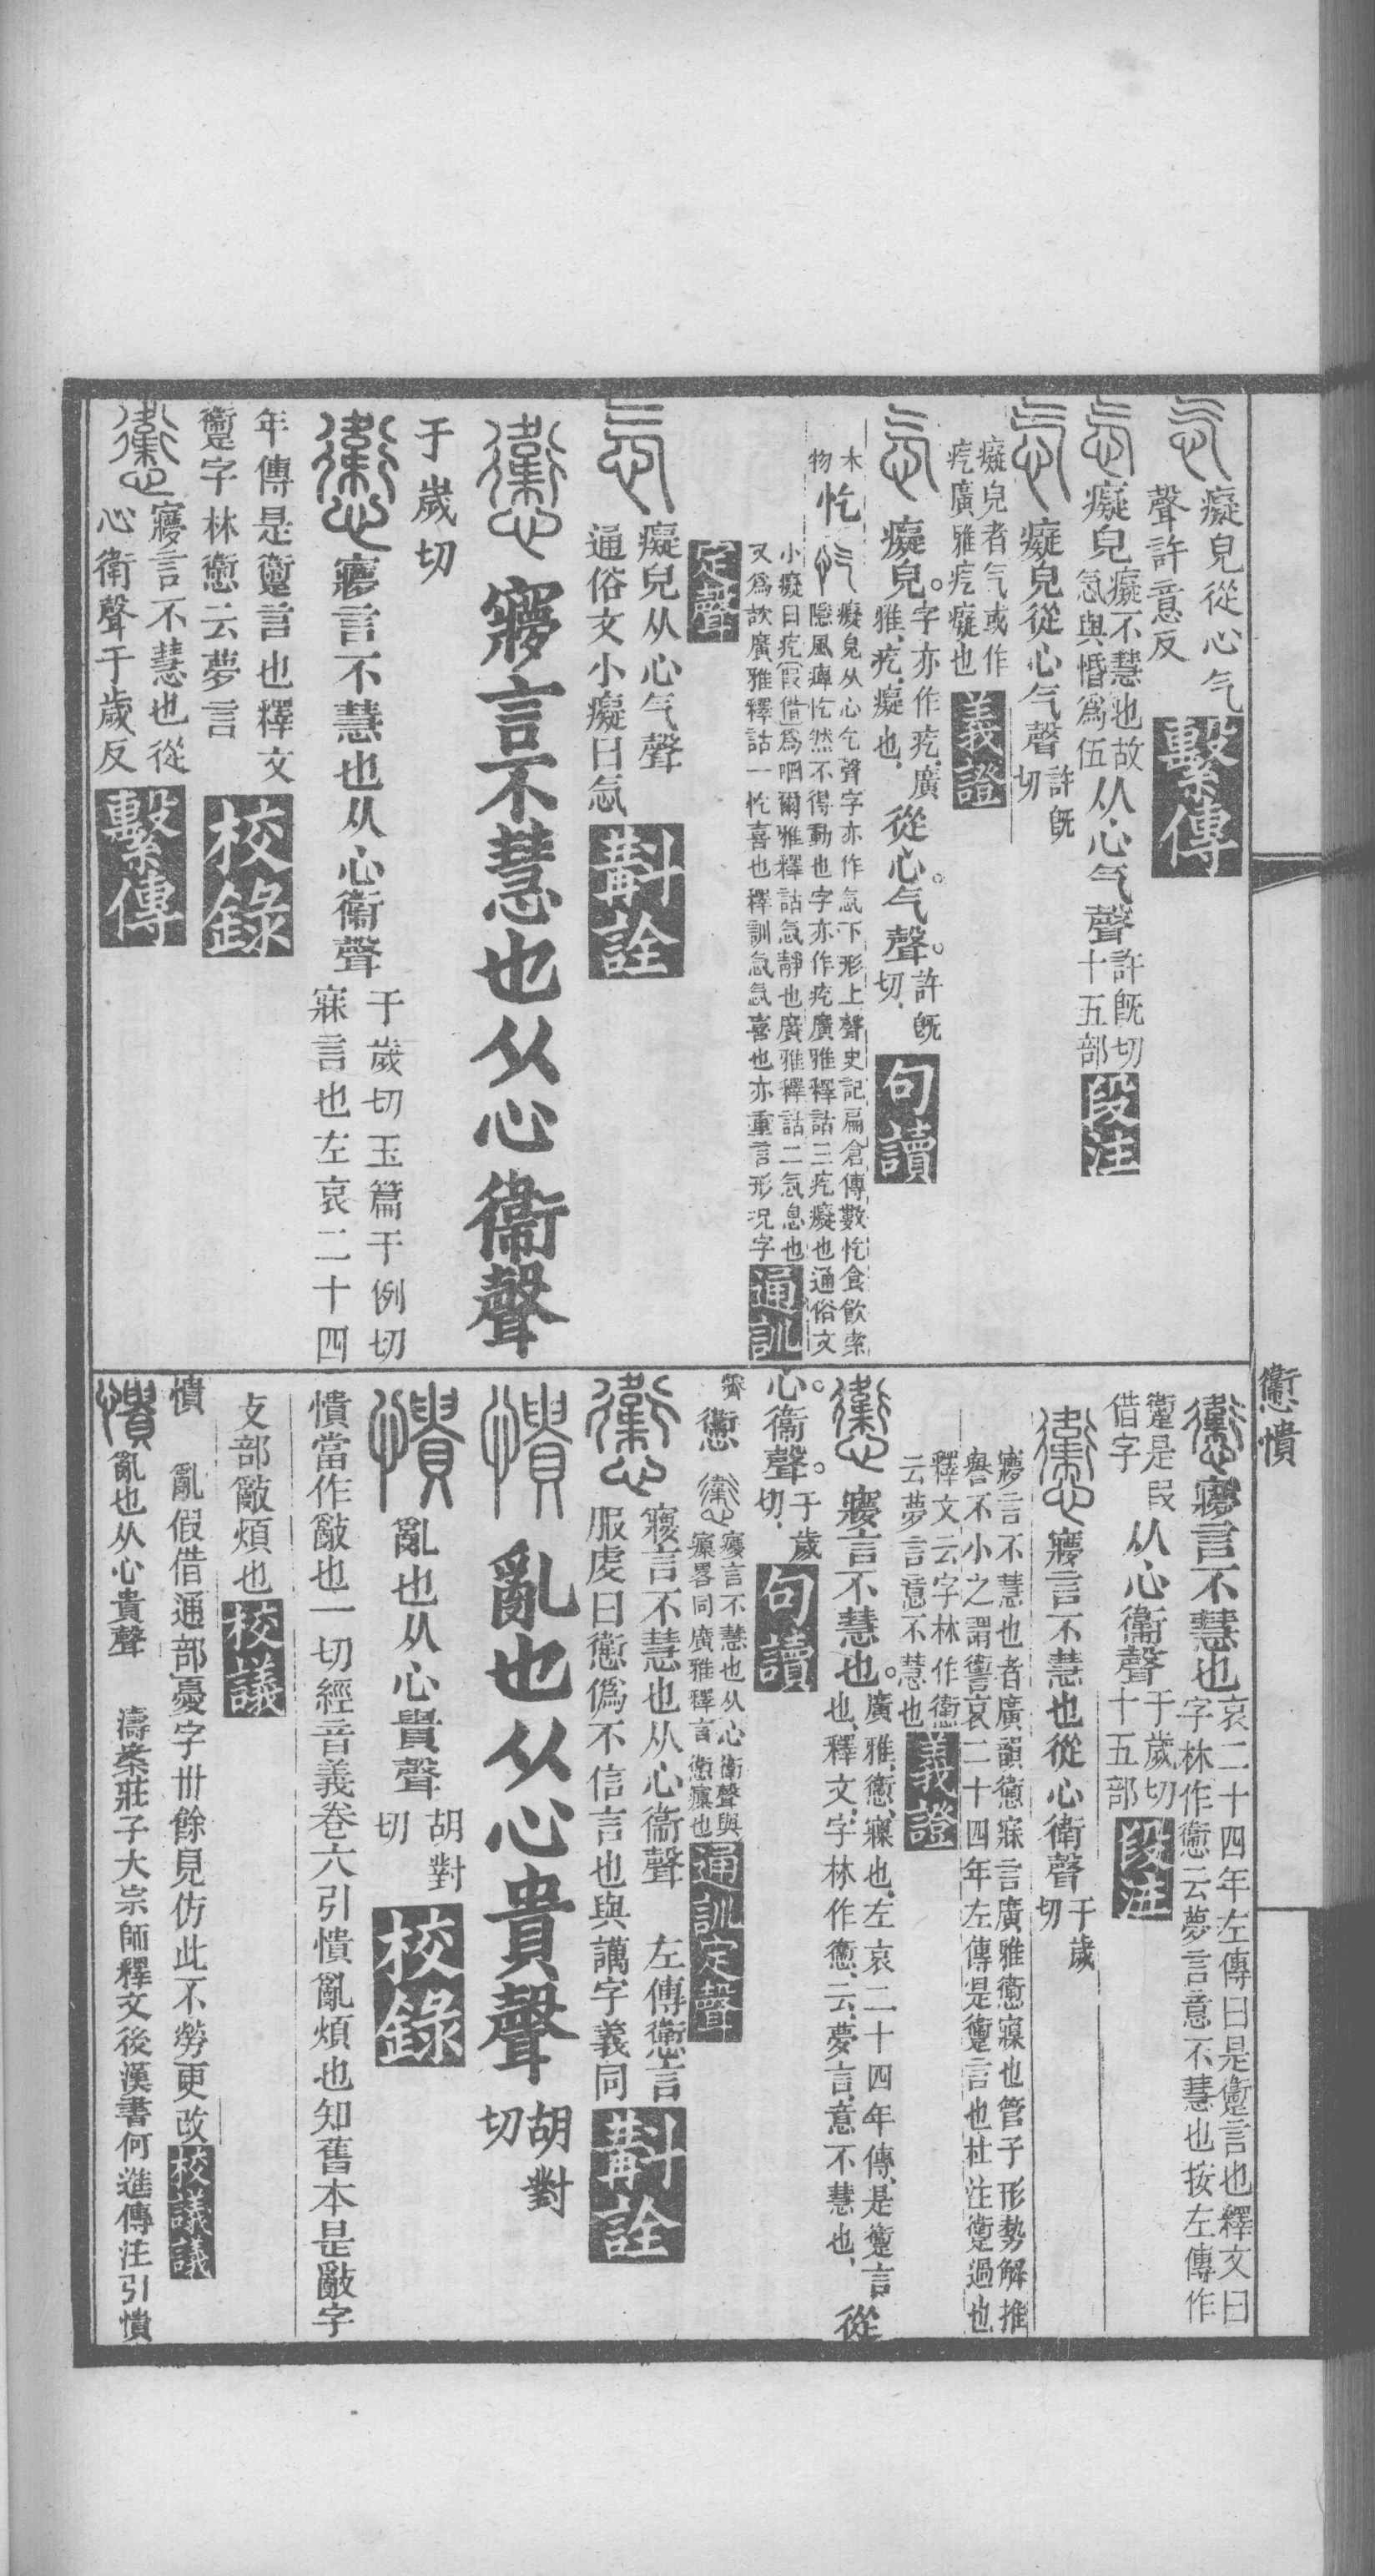 癡皃從心气
聲許意反
繫傳
癡皃
癡不慧也故
忥與惛爲伍
从心气聲
許旣切
十五部
段注
癡皃從心气聲
許旣
切
癡皃者气或作
疙廣雅疙癡也
義證
癡皃。
字亦作疙廣
雅疙癡也
從心。气聲。
許旣
切
句讀
木
物
忔
癡皃从心气聲字亦作忥下形上聲史記扁倉傳數忔食飮索
隱風痺忔然不得動也字亦作疙廣雅釋詁三疙癡也通俗文
小癡曰疙叚借爲呬爾雅釋詁忥靜也廣雅釋詁二忥息也
又爲欯廣雅釋詁一忔喜也釋訓忥忥喜也亦重言形況字
通訓
定聲
癡皃从心气聲
通俗文小癡曰忥
斠詮
寱言不慧也从心衞聲
于歲切
寱言不慧也从心衞聲
于歲切玉篇于例切
寐言也左哀二十四
年傳是躗言也釋文
躗字林㦣云夢言
校錄
寱言不慧也從
心衛聲于歲反
繫傳
㦣憒
寱言不慧也
哀二十四年左傳曰是躗言也釋文曰
字林作㦣云夢言意不慧也按左傳作
躗是叚
借字
从心衞聲
于歲切
十五部
段注
寱言不慧也從心衛聲
于歲
切
寱言不慧也者廣韻㦣寐言廣雅㦣寱也管子形勢解推
譽不小之謂讆哀二十四年左傳是躗言也杜注躗過也
釋文云字林作㦣
云夢言意不慧也
義證
寱言不慧也。
廣雅㦣寱也左哀二十四年傳是躗言
也釋文字林作㦣云夢言意不慧也
從
心。衞聲。
于歲
切
句讀
㦣
寱言不慧也从心衞聲與
㾜畧同廣雅釋言㦣㾜也
通訓定聲
寱言不慧也从心衞聲
左傳㦣言
服虔曰㦣僞不信言也與讆字義同
斠詮
亂也从心貴聲
胡對
切
亂也从心貴聲
胡對
切
校錄
憒當作㪱也一切經音義卷六引憒亂煩也知舊本是㪱字
攴部㪱煩也
校議
憒
亂假借通部憂字卅餘見仿此不勞更改
校議議
亂也从心貴聲
濤案莊子大宗師釋文後漢書何進傳注引憒